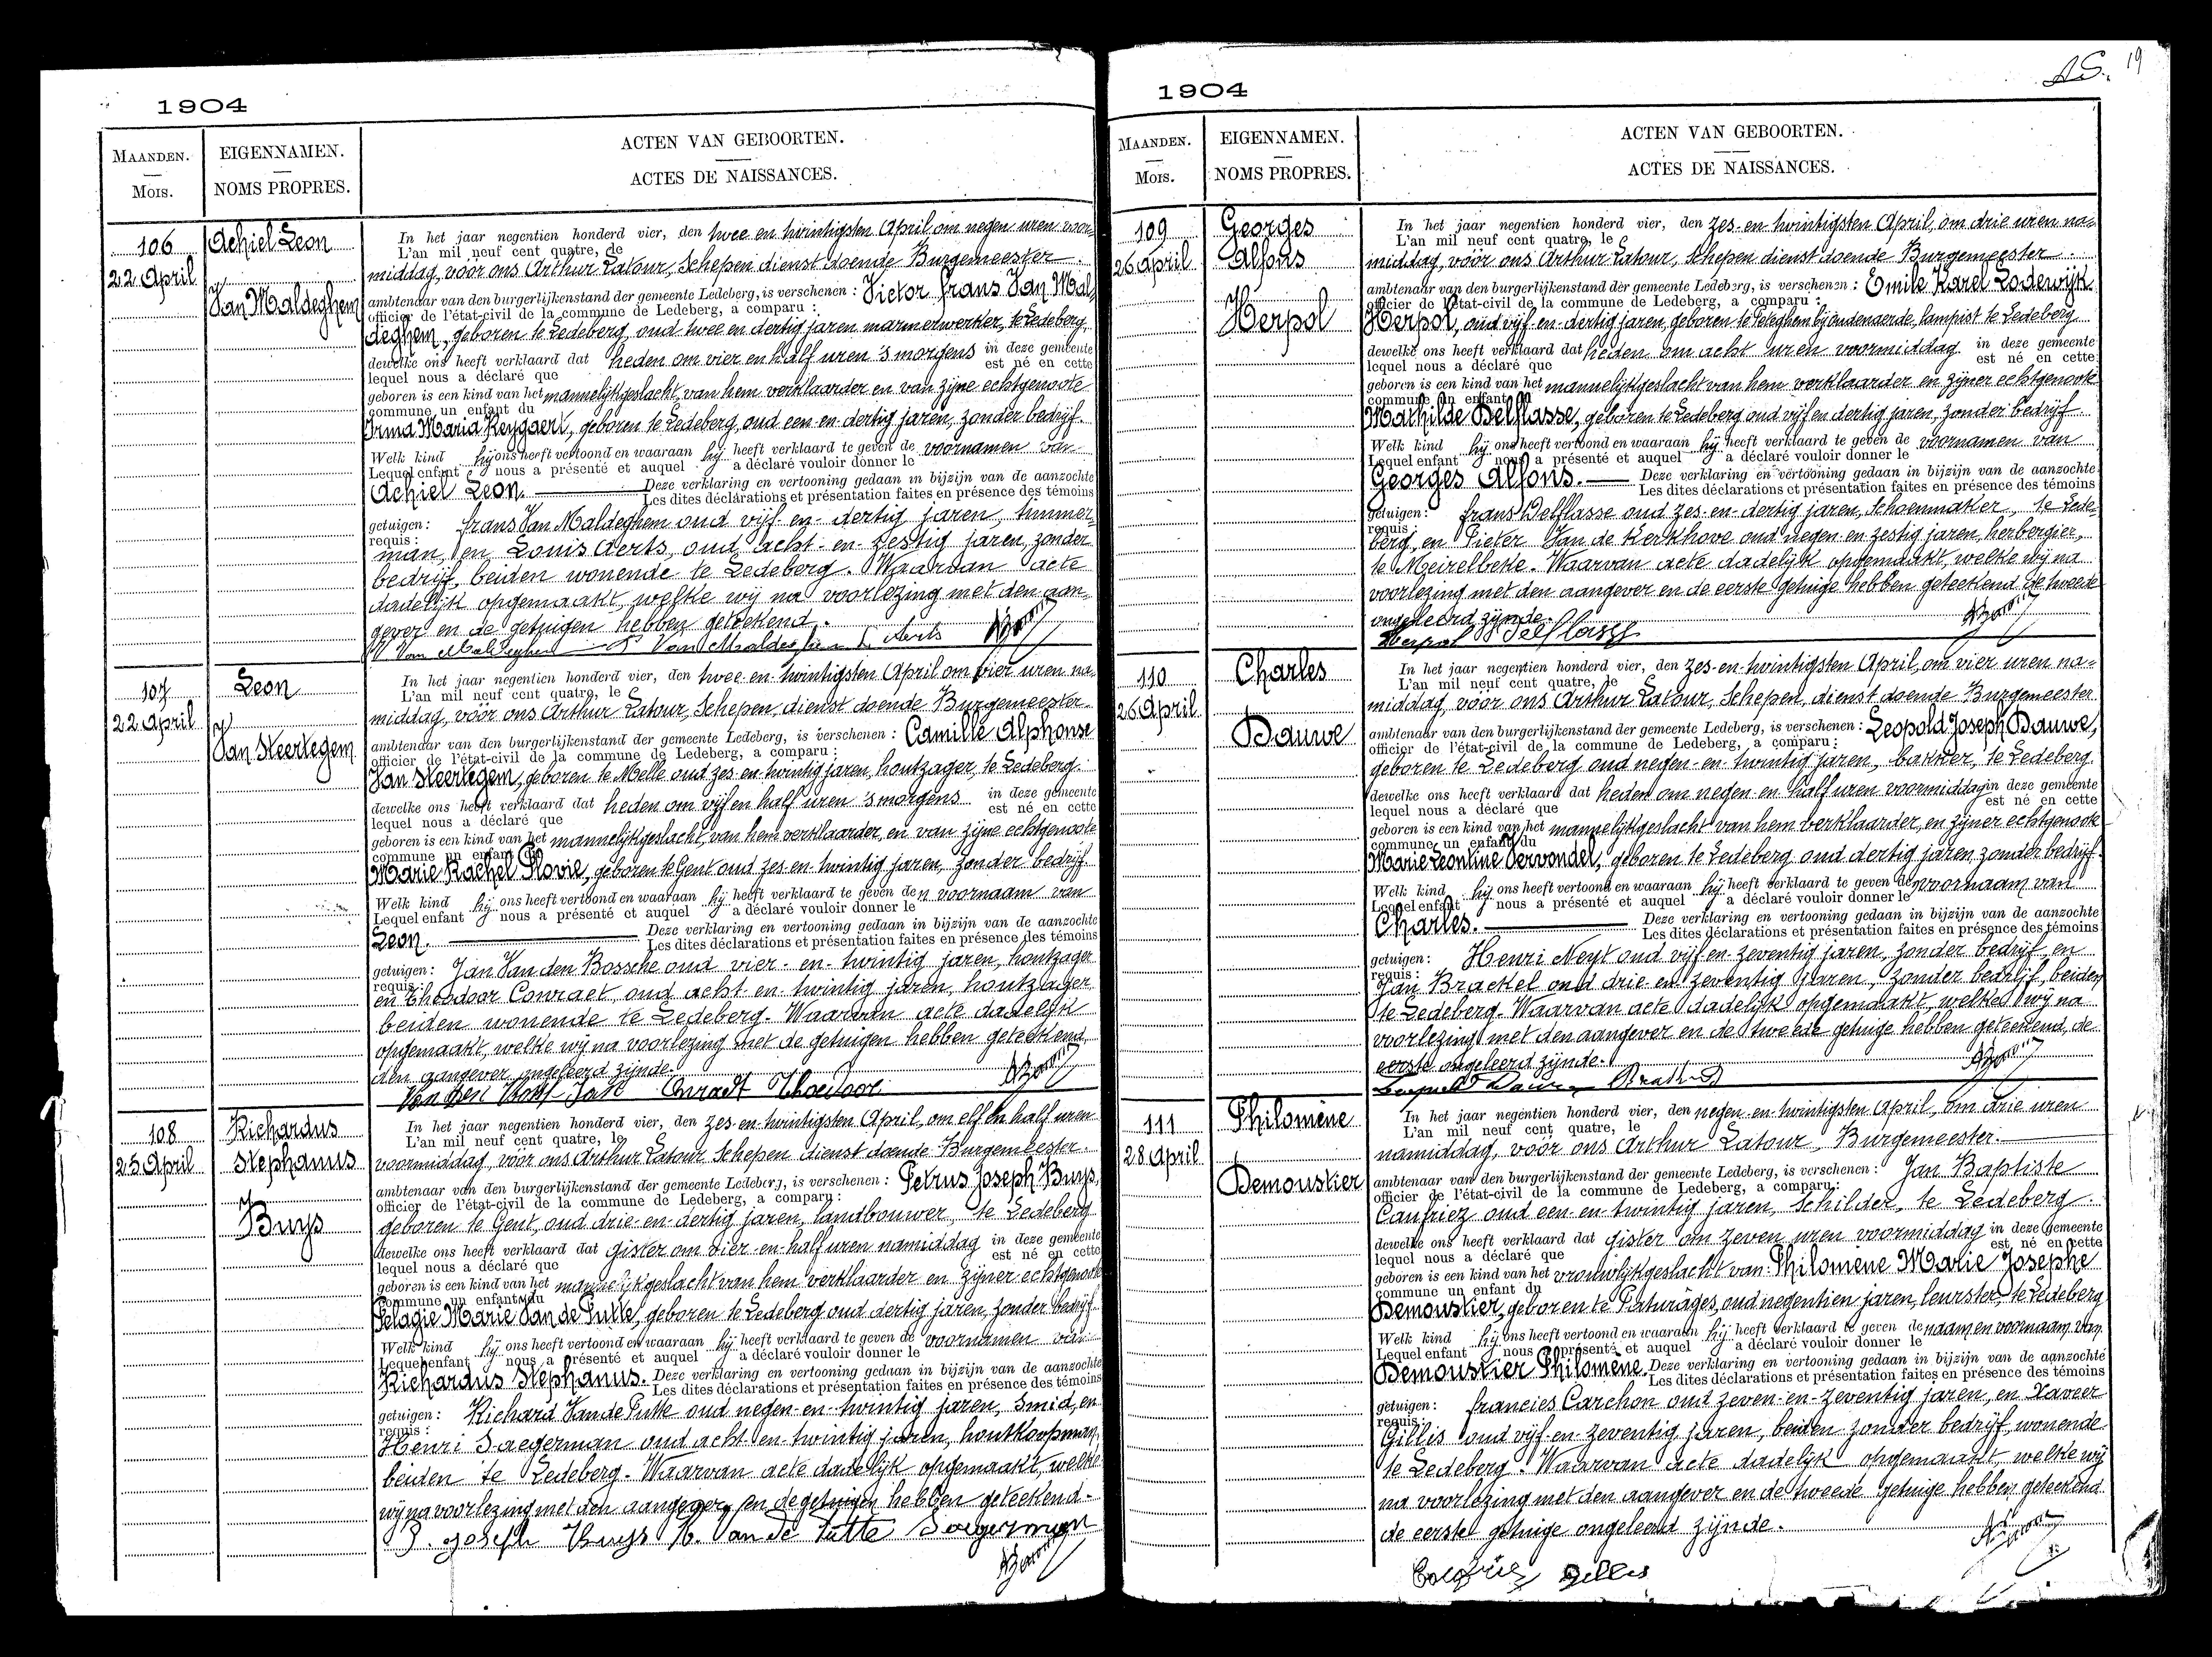 1904
MAANDEN.
Mois.
EIGENNAMEN.
NOMS PROPRES.
ACTEN VAN GEBOORTEN.
ACTES DE NAISSANCES.
106
22 April
Achiel Leon
Van Maldeghem
In het jaar negentien honderd vier, den twee en twintigsten April om negen uren voor-
L'an mil neuf cent quatre, le
middag, voor ons Arthur Latour, Schepen dienst doende Burgemeester.
ambtenaar van den burgerlijkenstand der gemeente Ledeberg, is verschenen : Victor Frans Van Mal-
officier de l'état-civil de la commune de Ledeberg, a comparu :
deghem, geboren te Ledeberg, oud twee en dertig jaren marmerwerker, te Ledeberg
dewelke ons heeft verklaard dat heden om vier en half uren 's morgens in deze gemeente
lequel nous a déclaré que est né en cette
geboren is een kind van het mannelijkgeslacht, van hem verklaarder en van zijne echtgenoote
commune un enfant du
Irma Maria Keygaert, geboren te Ledeberg, oud een en dertig jaren, zonder bedrijf.
Welk kind hij ons heeft vertoond en waaraan hij heeft verklaard te geven de voornamen van
Lequel enfant nous a présenté et auquel a déclaré vouloir donner le
Achiel Leon. Deze verklaring en vertooning gedaan in bijzijn van de aanzochte
Les dites déclarations et présentation faites en présence des témoins
getuigen : Frans Van Maldeghem oud vijf en dertig jaren, timmer-
requis :
man, en Louis Aerts, oud acht en zestig jaren, zonder
bedrijf, beiden wonende te Ledeberg. Waarvan acte
dadelijk opgemaakt, welke wij na voorlezing met den aan-
gever en de getuigen hebben geteekend.
V Van Maldeghem F Van Maldeghem L Aerts
107
22 April
Leon
Van Steertegem
In het jaar negentien honderd vier, den twee en twintigsten April om vier uren na-
L'an mil neuf cent quatre, le
middag, vóór ons Arthur Latour, Schepen, dienst doende Burgemeester
ambtenaar van den burgerlijkenstand der gemeente Ledeberg, is verschenen : Camille Alphonse
officier de l'état-civil de la commune de Ledeberg, a comparu :
Van Steertegem, geboren te Melle oud zes en twintig jaren, houtzager, te Ledeberg.
dewelke ons heeft verklaard dat heden om vijf en half uren 's morgens in deze gemeente
lequel nous a déclaré que est né en cette
geboren is een kind van het mannelijkgeslacht, van hem verklaarder, en van zijne echtgenoote
commune un enfant du
Marie Rachel Plovie, geboren te Gent oud zes en twintig jaren, zonder bedrijf
Welk kind hij ons heeft vertoond en waaraan hij heeft verklaard te geven den voornaam van
Lequel enfant nous a présenté et auquel a déclaré vouloir donner le
Leon. Deze verklaring en vertooning gedaan in bijzijn van de aanzochte
Les dites déclarations et présentation faites en présence des témoins
getuigen : Jan Van den Bossche oud vier en twintig jaren, houtzager
requis :
en Theodoor Conraet, oud acht en twintig jaren, houtzager
beiden wonende te Ledeberg. Waarvan acte dadelijk
opgemaakt, welke wij na voorlezing met de getuigen hebben geteekend
den aangever ongeleerd zijnde.
Van den Jan Conradt Theodoor
108
25 April
Richardus
Stephanus
Buys
In het jaar negentien honderd vier, den zes en twintigsten April, om elf en half uren
L'an mil neuf cent quatre, le
voormiddag, vóór ons Arthur Latour Schepen dienst doende Burgemeester.
ambtenaar van den burgerlijkenstand der gemeente Ledeberg, is verschenen : Petrus Joseph Buys
officier de l'état-civil de la commune de Ledeberg, a comparu :
geboren te Gent, oud drie en dertig jaren, landbouwer, te Ledeberg
dewelke ons heeft verklaard dat gister om vier en half uren namiddag in deze gemeente
lequel nous a déclaré que est né en cette
geboren is een kind van het mannelijkgeslacht van hem verklaarder en zijner echtgenoote
commune un enfant du
Pelagie Marie Van de Putte, geboren te Ledeberg oud dertig jaren, zonder bedrijf
Welk kind hij ons heeft vertoond en waaraan hij heeft verklaard te geven de voornamen van
Lequel enfant nous a présenté et auquel a déclaré vouloir donner le
Richardus Stephanus. Deze verklaring en vertooning gedaan in bijzijn van de aanzochte
Les dites déclarations et présentation faites en présence des témoins
getuigen : Richard Van de Putte oud negen en twintig jaren, smid, en
requis :
Henri Saegerman oud acht en twintig jaren, houtkoopman,
beiden te Ledeberg. Waarvan acte dadelijk opgemaakt, welke
wij na voorlezing met den aangever en de getuigen hebben geteekend.
P. Joseph Buys R. Van de Putte Saegerman
19
1904
MAANDEN.
Mois.
EIGENNAMEN.
NOMS PROPRES.
ACTEN VAN GEBOORTEN.
ACTES DE NAISSANCES.
109
26 April
Georges
Alfons
Herpol
In het jaar negentien honderd vier, den zes en twintigsten April, om drie uren na-
L'an mil neuf cent quatre, le
middag, vóór ons Arthur Latour, Schepen dienst doende Burgemeester
ambtenaar van den burgerlijkenstand der gemeente Ledeberg, is verschenen : Emile Karel Lodewijk
officier de l'état-civil de la commune de Ledeberg, a comparu :
Herpol, oud vijf en dertig jaren, geboren te Peteghem bij oudenaerde, lampist te Ledeberg
dewelke ons heeft verklaard dat heden om acht uren voormiddag in deze gemeente
lequel nous a déclaré que est né en cette
geboren is een kind van het mannelijkgeslacht van hem verklaarder en zijner echtgenoote
commune un enfant du
Mathilde Delflasse, geboren te Ledeberg oud vijf en dertig jaren, zonder bedrijf
Welk kind hij ons heeft vertoond en waaraan hij heeft verklaard te geven de voornamen van
Lequel enfant nous a présenté et auquel a déclaré vouloir donner le
Georges Alfons. Deze verklaring en vertooning gedaan in bijzijn van de aanzochte
Les dites déclarations et présentation faites en présence des témoins
getuigen : Frans Delflasse oud zes en dertig jaren, Schoenmaker, te Lede-
requis :
berg, en Pieter Van de Kerkhove oud negen en zestig jaren, herbergier,
te Meirelbeke. Waarvan acte dadelijk opgemaakt, welke wij na
voorlezing met den aangever en de eerste getuige hebben geteekend de tweede
ongeleerd zijnde.
Herpol Delflasse
110
26 April
Charles
Dauwe
In het jaar negentien honderd vier, den zes en twintigsten April, om vier uren na-
L'an mil neuf cent quatre, le
middag, vóór ons Arthur Latour, Schepen, dienst doende Burgemeester
ambtenaar van den burgerlijkenstand der gemeente Ledeberg, is verschenen : Leopold Joseph Dauwe,
officier de l'état-civil de la commune de Ledeberg, a comparu :
geboren te Ledeberg oud negen en twintig jaren, bakker, te Ledeberg
dewelke ons heeft verklaard dat heden om negen en half uren voormiddag in deze gemeente
lequel nous a déclaré que est né en cette
geboren is een kind van het mannelijkgeslacht van hem verklaarder, en zijner echtgenoote
commune un enfant du
Marie Leontine Vervondel, geboren te Ledeberg oud dertig jaren zonder bedrijf.
Welk kind hij ons heeft vertoond en waaraan hij heeft verklaard te geven den voornaam van
Lequel enfant nous a présenté et auquel a déclaré vouloir donner le
Charles. Deze verklaring en vertooning gedaan in bijzijn van de aanzochte
Les dites déclarations et présentation faites en présence des témoins
getuigen : Henri Neyt oud vijf en zeventig jaren, zonder bedrijf, en
requis :
Jan Brackel oud drie en zeventig jaren, zonder bedrijf, beiden
te Ledeberg. Waarvan acte dadelijk opgemaakt, welke wij na
voorlezing met den aangever en de tweede getuige hebben geteekend, de
eerste ongeleerd zijnde.
Leopold Dauwe
111
28 April
Philomène
Demoustier
In het jaar negentien honderd vier, den negen en twintigsten April, om drie uren
L'an mil neuf cent quatre, le
namiddag, vóór ons Arthur Latour, Burgemeester.
ambtenaar van den burgerlijkenstand der gemeente Ledeberg, is verschenen : Jan Baptiste
officier de l'état-civil de la commune de Ledeberg, a comparu :
Caufriez oud een en twintig jaren, Schilder, te Ledeberg.
dewelke ons heeft verklaard dat gister om zeven uren voormiddag in deze gemeente
lequel nous a déclaré que est né en cette
geboren is een kind van het vrouwlijkgeslacht van Philomène Marie Josephe
commune un enfant du
Demoustier, geboren te Paturâges, oud negentien jaren, leurster, te Ledeberg
Welk kind hij ons heeft vertoond en waaraan hij heeft verklaard te geven de naam en voornaam van
Lequel enfant nous a présenté et auquel a déclaré vouloir donner le
Demoustier Philomène. Deze verklaring en vertooning gedaan in bijzijn van de aanzochte
Les dites déclarations et présentation faites en présence des témoins
getuigen : Francies Carchon oud zeven en zeventig jaren, en Xavier
requis :
Gillis oud vijf en zeventig jaren, beiden zonder bedrijf, wonende
te Ledeberg. Waarvan acte dadelijk opgemaakt, welke wij
na voorlezing met den aangever en de tweede getuige hebben geteekend
de eerste getuige ongeleerd zijnde.
Caufriez Gillis